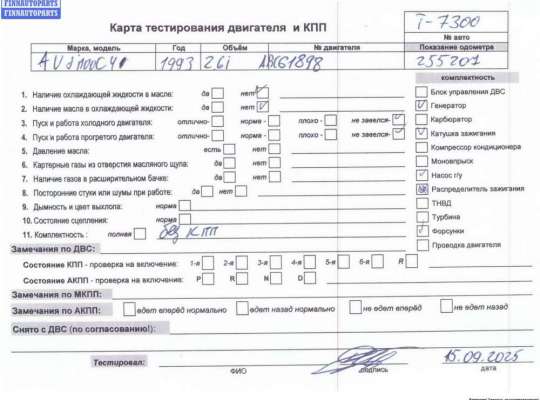 FINNAUTOPARTS
FINNAUTOPARTS
Карта тестирования двигателя и КПП
T-7300
№ авто
Марка, модель Год Объём № двигателя Показание одометра
1993 2.6i ABC61898 255201
комплектность
1. Наличие охлаждающей жидкости в масле: да нет
2. Наличие масла в охлаждающей жидкости: да нет
3. Пуск и работа холодного двигателя: отлично- норма - плохо - не завелся-
4. Пуск и работа прогретого двигателя: отлично- норма - плохо - не завелся-
5. Давление масла: есть нет
6. Картерные газы из отверстия масляного щупа: да нет
7. Наличие газов в расширительном бачке: да нет
8. Посторонние стуки или шумы при работе: да нет
9. Дымность и цвет выхлопа: норма
10. Состояние сцепления: норма
11. Комплектность : полная без КПП
Блок управления ДВС
Генератор
Карбюратор
Катушка зажигания
Компрессор кондиционера
Моновпрыск
Насос г/у
Распределитель зажигания
ТНВД
Турбина
Форсунки
Проводка двигателя
Замечания по ДВС:
Состояние КПП - проверка на включение: 1-я 2-я 3-я 4-я 5-я 6-я R
Состояние АКПП - проверка на включение: P R N D
Замечания по МКПП:
Замечания по АКПП: едет вперёд нормально едет назад нормально не едет вперёд не едет назад
Снято с ДВС (по согласованию!):
Тестировал: 15.09.2025
ФИО подпись дата